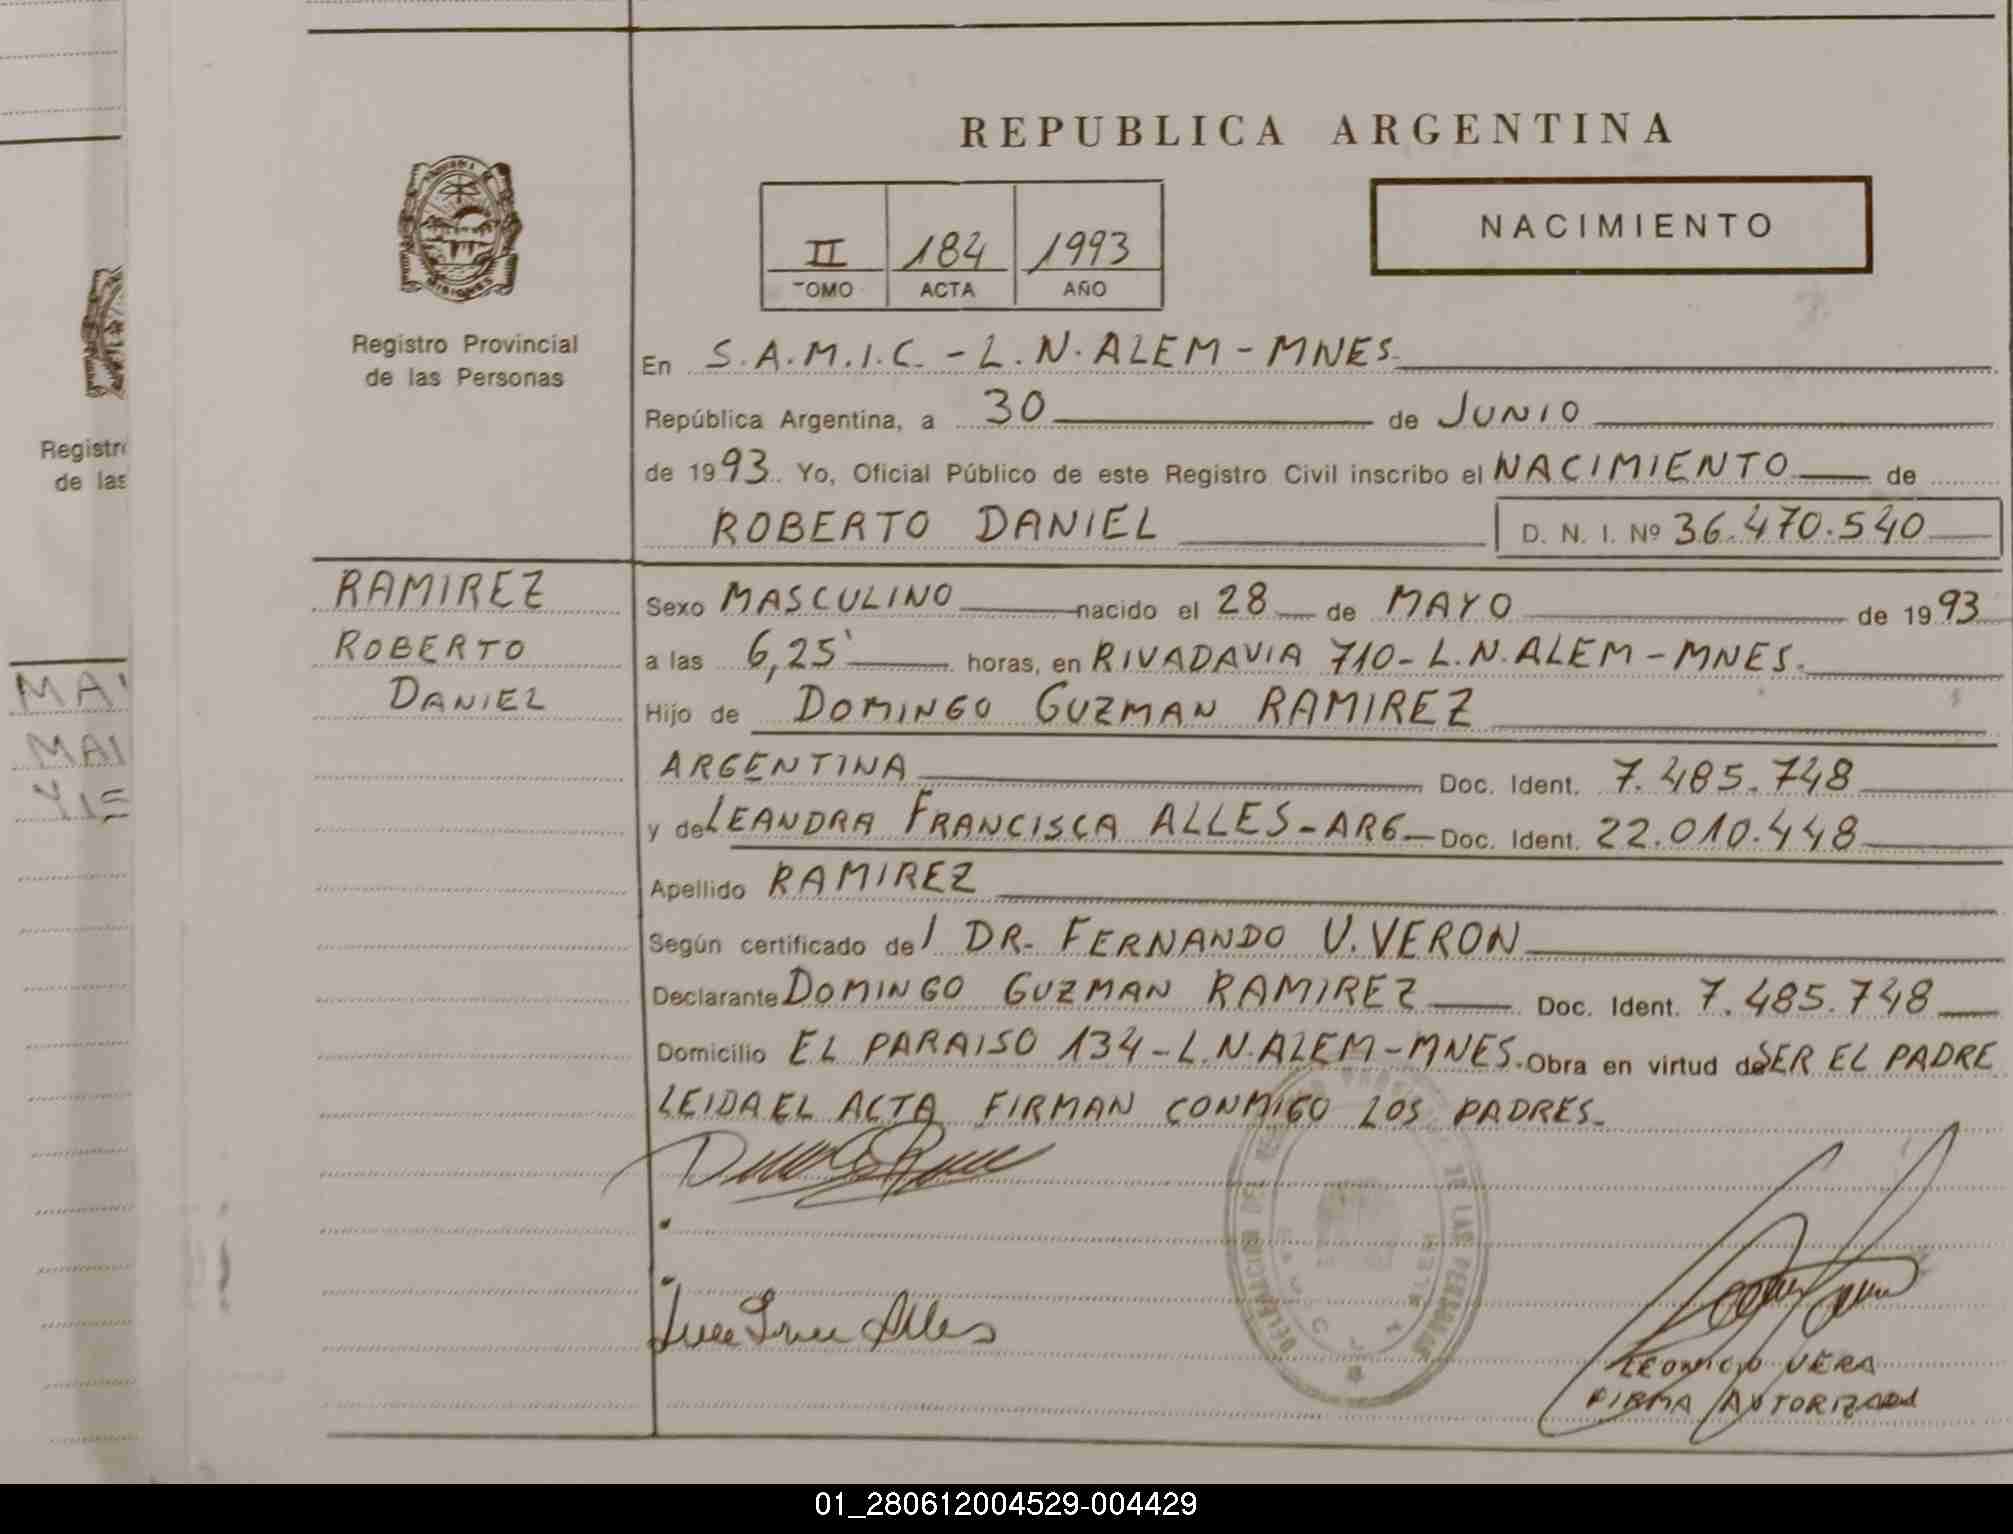 REPUBLICA ARGENTINA
NACIMIENTO
II 184 1993
TOMO ACTA AÑO
MISIONES
Registro Provincial
de las Personas
En S.A.M.I.C. - L.N. ALEM - MNES.
República Argentina, a 30 de JUNIO
de 1993. Yo, Oficial Público de este Registro Civil inscribo el NACIMIENTO de
ROBERTO DANIEL D. N. I. Nº 36.470.540
RAMIREZ
ROBERTO
DANIEL
Sexo MASCULINO nacido el 28 de MAYO de 1993
a las 6,25' horas, en RIVADAVIA 710 - L.N. ALEM - MNES.
Hijo de DOMINGO GUZMAN RAMIREZ
ARGENTINA Doc. Ident. 7.485.748
y de LEANDRA FRANCISCA ALLES - ARG - Doc. Ident. 22.010.448
Apellido RAMIREZ
Según certificado del DR. FERNANDO V. VERON
Declarante DOMINGO GUZMAN RAMIREZ Doc. Ident. 7.485.748
Domicilio EL PARAISO 134 - L.N. ALEM - MNES. Obra en virtud de SER EL PADRE
LEIDA EL ACTA FIRMAN CONMIGO LOS PADRES.
Alles
DELEGACION DEL REGISTRO PROVINCIAL DE LAS PERSONAS
LEONICIO VERA
FIRMA AUTORIZADA
Registr
de las
MA
MAI
01_280612004529-004429